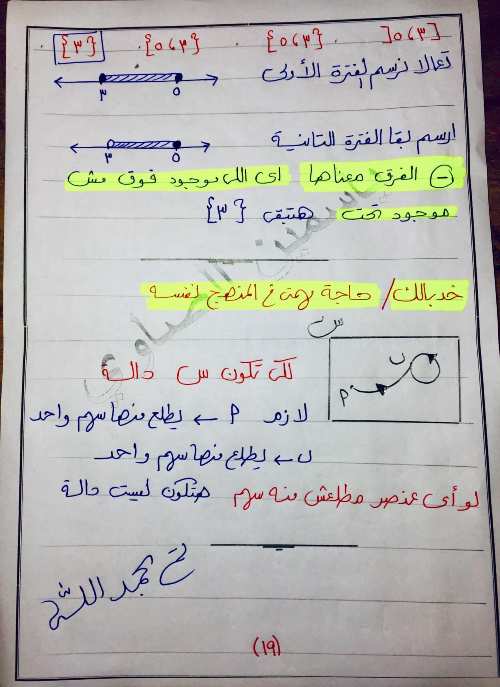 ]٣،٥] . {٣،٥} . {٣،٥} . {٣}
تعالا نرسم الفترة الأولى
٣ ٥
ارسم بقا الفترة التانية
٣ ٥
- الفرق معناها اى اللى موجود فوق مش
موجود تحت هتبقى {٣}
خد بالك / حاجة مهمة فى المنهج لنفسه
س
P ب
لكى تكون س دالة
لازم P ← يطلع منها سهم واحد
ب ← يطلع منها سهم واحد
لو أى عنصر مطلعش منه سهم هتكون ليست دالة
تم بحمد الله
(١٩)